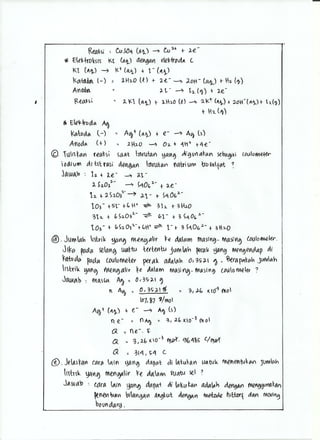 Reaksi : CuSO4 (aq) → Cu2+ + 2e-
* Elektrolisis KI (aq) dengan elektroda C
KI (aq) → K+ (aq) + I- (aq)
Katoda (-) : 2H2O (l) + 2e- → 2OH- (aq) + H2 (g)
Anoda : 2I- → I2 (g) + 2e-
Reaksi : 2KI (aq) + 2H2O (l) → 2K+ (aq) + 2OH- (aq) + I2 (g)
+ H2 (g)
* Elektroda Ag
Katoda (-) : Ag+ (aq) + e- → Ag (s)
Anoda (+) : 2H2O → O2 + 4H+ + 4e-
Ⓒ Tuliskan reaksi saat larutan yang digunakan sebagai coulometer
iodium dititrasi dengan larutan natrium tiosulfat ?
Jawab : I2 + 2e- → 2I-
2 S2O3 2- → S4O6 2- + 2e-
I2 + 2S2O3 2- → 2I- + S4O6 2-
IO3- + 5I- + 6H+ ⇌ 3I2 + 3H2O
3I2 + 6S2O3 2- ⇌ 6I- + 3 S4O6 2-
IO3- + 6S2O3 2- + 6H+ ⇌ I- + 3 S4O6 2- + 3H2O
ⓓ. Jumlah listrik yang mengalir ke dalam masing-masing coulometer.
Jika pada selang waktu tertentu jumlah perak yang mengendap di
katoda pada coulometer perak adalah 0,3521 g. Berapakah jumlah
listrik yang mengalir ke dalam masing-masing coulometer ?
Jawab : massa Ag = 0,3521 g
n Ag = 0,3521 g = 3,26 x 10-3 mol
107,87 g/mol
Ag+ (aq) + e- → Ag (s)
n e- = n Ag = 3,26 x 10-3 mol
Q = n e- . F
Q = 3,26 x 10-3 mol . 96.485 C/mol
Q = 314,54 C
ⓔ. Jelaskan cara lain yang dapat dilakukan untuk menentukan jumlah
listrik yang mengalir ke dalam suatu sel ?
Jawab : cara lain yang dapat dilakukan adalah dengan menggunakan
penentuan bilangan angkut dengan metode hittorf dan moving
boundary.